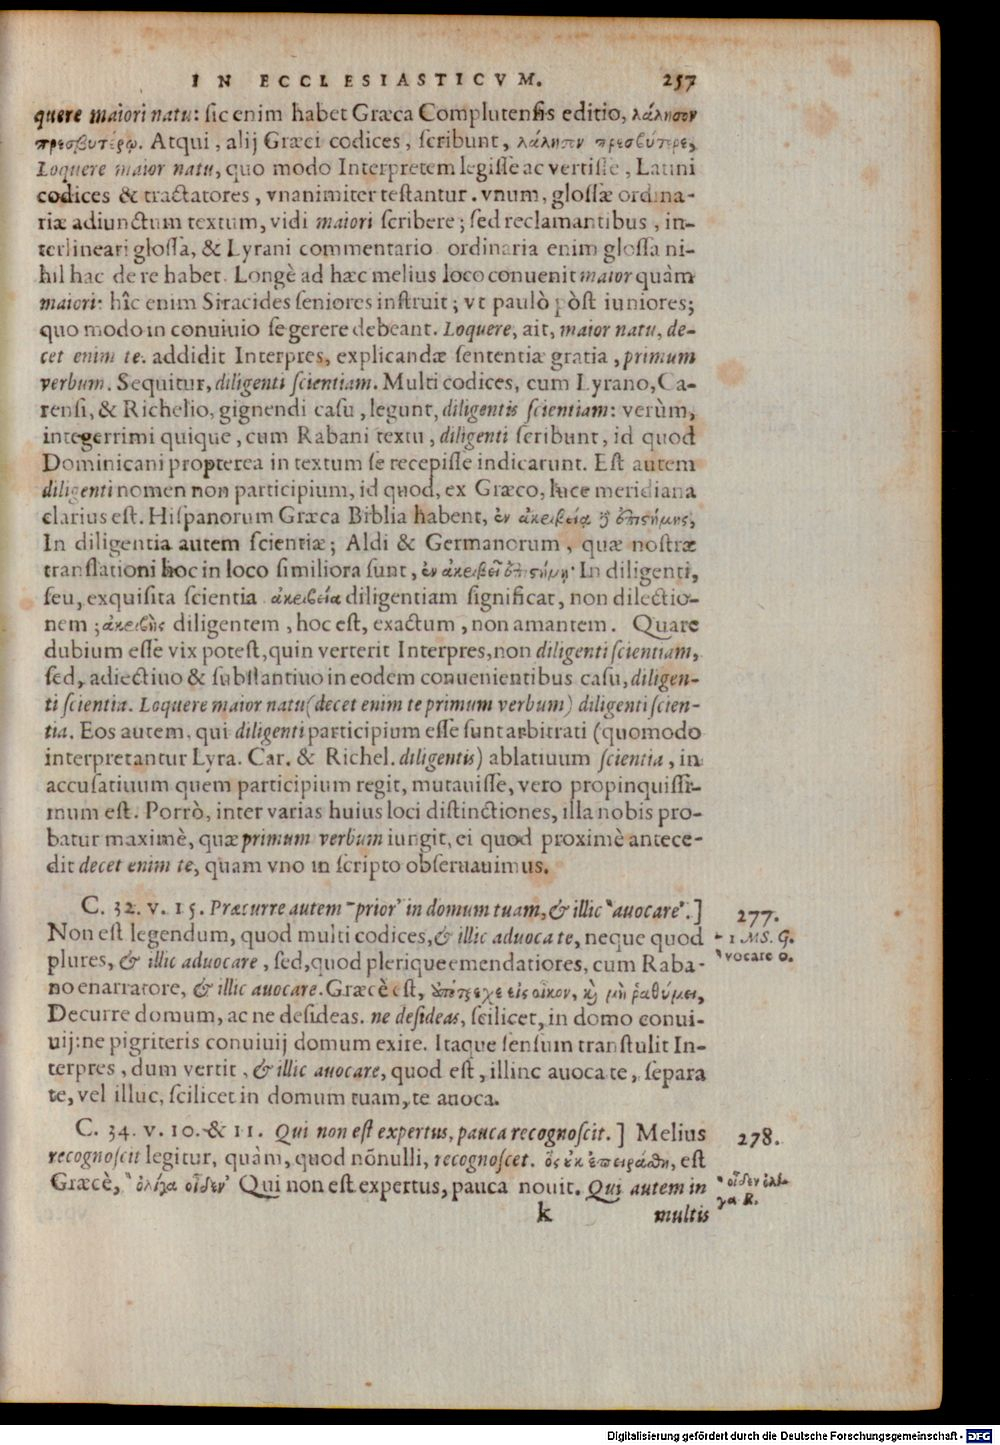 IN ECCLESIASTICVM. 257
quere maiori natu: sic enim habet Græca Complutensis editio, λάλησον
πρεσβυτέρῳ. Atqui, alij Græci codices, scribunt, λάλησον πρεσβύτερε,
Loquere maior natu, quo modo Interpretem legisse ac vertisse, Latini
codices & tractatores, vnanimiter testantur. vnum, glossæ ordina-
riæ adiunctum textum, vidi maiori scribere; sed reclamantibus, in-
terlineari glossa, & Lyrani commentario ordinaria enim glossa ni-
hil hac de re habet. Longè ad hæc melius loco conuenit maior quàm
maiori: hîc enim Siracides seniores instruit; vt paulò pòst iuniores;
quo modo in conuiuio se gerere debeant. Loquere, ait, maior natu, de-
cet enim te. addidit Interpres, explicandæ sententiæ gratia, primum
verbum. Sequitur, diligenti scientiam. Multi codices, cum Lyrano, Ca-
rensi, & Richelio, gignendi casu, legunt, diligentis scientiam: verùm,
integerrimi quique, cum Rabani textu, diligenti scribunt, id quod
Dominicani propterea in textum se recepisse indicarunt. Est autem
diligenti nomen non participium, id quod, ex Græco, luce meridiana
clarius est. Hispanorum Græca Biblia habent, ἐν ἀκριβείᾳ ἢ ἐπιστήμης,
In diligentia autem scientiæ; Aldi & Germanorum, quæ nostræ
translationi hoc in loco similiora sunt, ἐν ἀκριβεῖ ἐπιστήμῃ· In diligenti,
seu, exquisita scientia ἀκριβεία diligentiam significat, non dilectio-
nem; ἀκριβὴς diligentem, hoc est, exactum, non amantem. Quare
dubium esse vix potest, quin verterit Interpres, non diligenti scientiam,
sed, adiectiuo & substantiuo in eodem conuenientibus casu, diligen-
ti scientia. Loquere maior natu (decet enim te primum verbum) diligenti scien-
tia. Eos autem, qui diligenti participium esse sunt arbitrati (quomodo
interpretantur Lyra. Car. & Richel. diligentis) ablatiuum scientia, in
accusatiuum quem participium regit, mutauisse, vero propinquissi-
mum est. Porrò, inter varias huius loci distinctiones, illa nobis pro-
batur maximè, quæ primum verbum iungit, ei quod proximè antece-
dit decet enim te, quam vno in scripto obseruauimus.
C. 32. v. 15. Præcurre autem prior in domum tuam, & illic auocare.] 277.
Non est legendum, quod multi codices, & illic aduoca te, neque quod 1 MS. G.
plures, & illic aduocare, sed, quod plerique emendatiores, cum Raba- vocare o.
no enarratore, & illic auocare. Græcè est, ἀπότρεχε εἰς οἶκον, καὶ μὴ ῥαθύμει,
Decurre domum, ac ne desideas. ne desideas, scilicet, in domo conui-
uij: ne pigriteris conuiuij domum exire. Itaque sensum transtulit In-
terpres, dum vertit, & illic auocare, quod est, illinc auoca te, separa
te, vel illuc, scilicet in domum tuam, te auoca.
C. 34. v. 10. & 11. Qui non est expertus, pauca recognoscit.] Melius 278.
recognoscit legitur, quàm, quod nõnulli, recognoscet. ὃς ἐκ ἐπειράθη, est
Græcè, ὀλίγα οἶδεν Qui non est expertus, pauca nouit. Qui autem in οἶδεν ὀλί-
γα R.
k multis
Digitalisierung gefördert durch die Deutsche Forschungsgemeinschaft - DFG